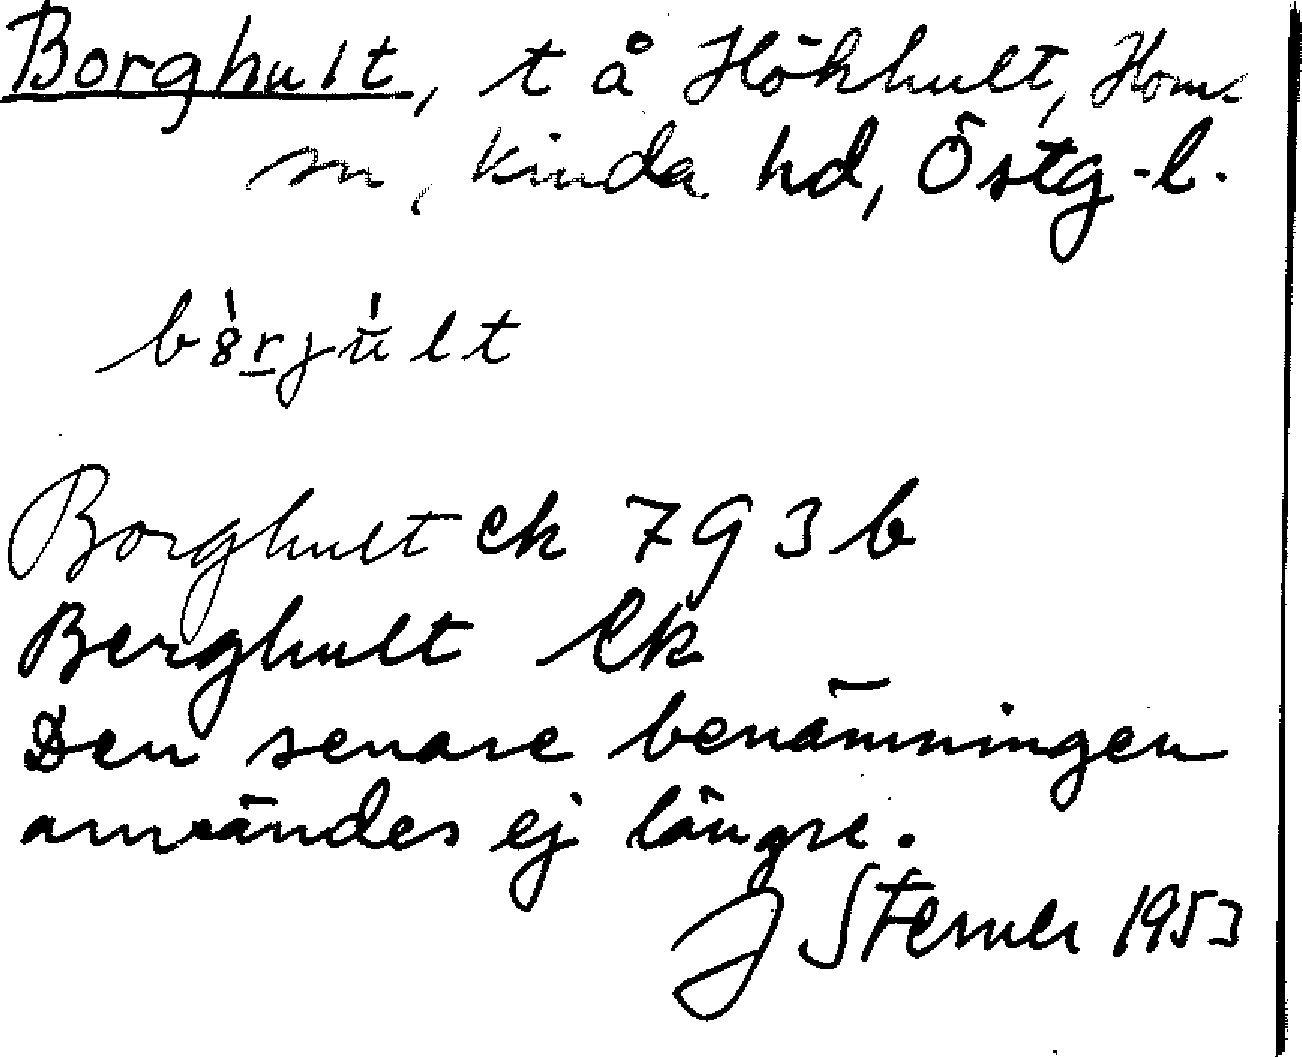 Borghult, t å Hökhult, Hom-
sn, Kinda hd, Östg-l.
bȯrjúlt
Borghult ek 793b
Berghult Ek
Den senare benämningen
användes ej längre.
J Sterner 1953